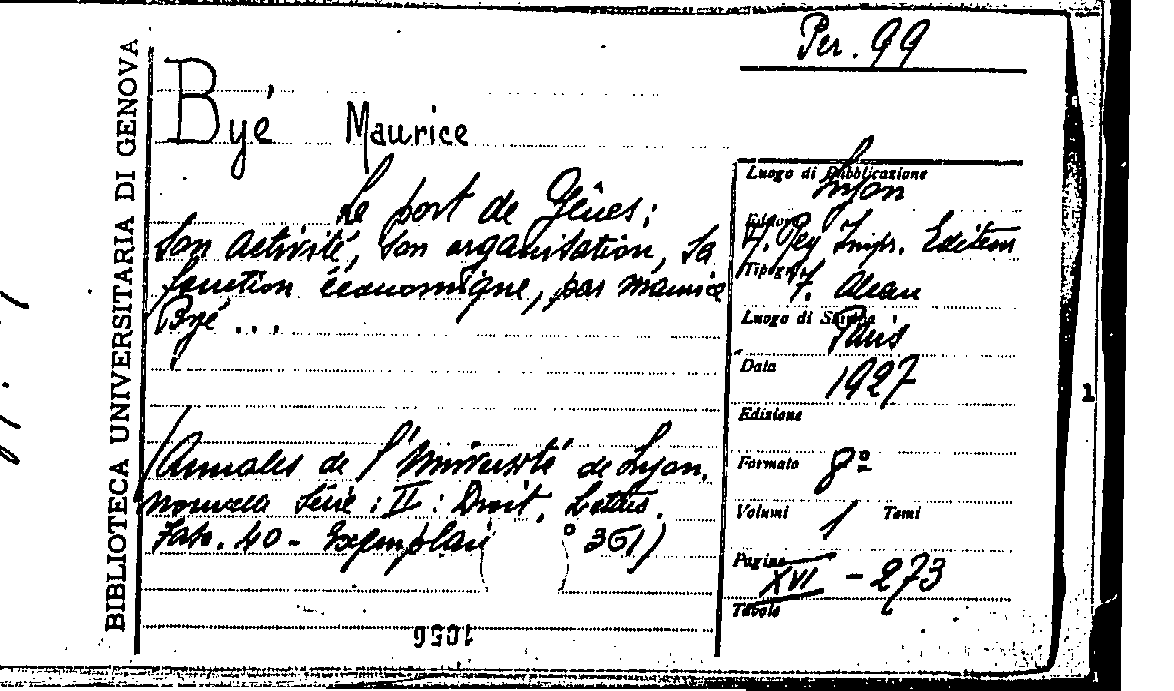 Per. 99
BIBLIOTECA UNIVERSITARIA DI GENOVA
Byé Maurice
Le port de Gênes:
Son activité, son organisation, sa
fonction économique, par Maurice
Byé ...
(Annales de l'Université de Lyon.
Nouvelle Série: II: Droit, Lettres.
Fasc. 40 - Exemplaire ° 361)
1056
Luogo di Pubblicazione Lyon
Editore Rey Impr. Editeur
Tipografo F. Alcan
Luogo di Stampa Paris
Data 1927
Edizione
Formato 8º
Volumi 1 Tomi
Pagine XVI - 273
Tavole
1